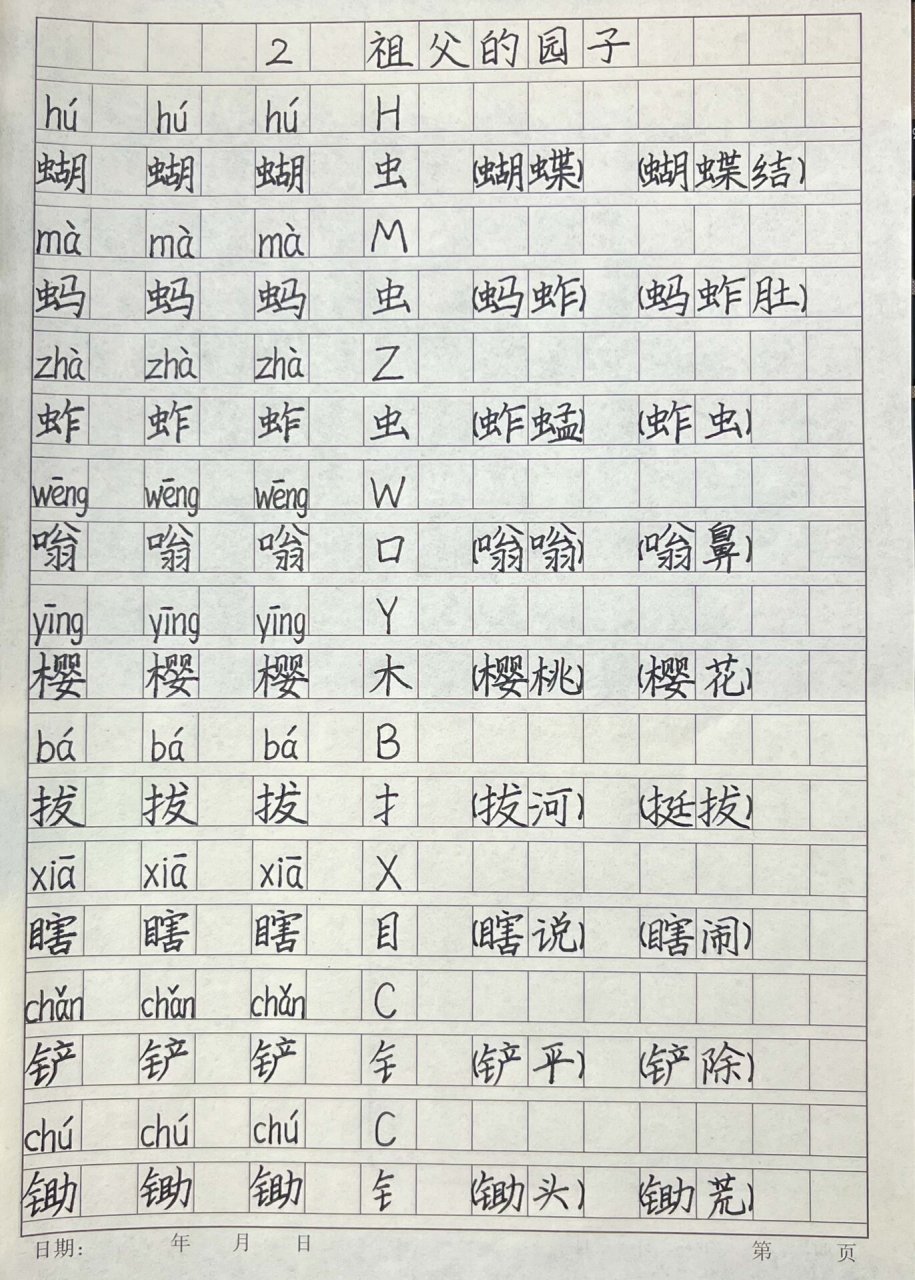 2 祖父的园子
hú hú hú H
蝴 蝴 蝴 虫 (蝴蝶) (蝴蝶结)
mà mà mà M
蚂 蚂 蚂 虫 (蚂蚱) (蚂蚱肚)
zhà zhà zhà Z
蚱 蚱 蚱 虫 (蚱蜢) (蚱虫)
wēng wēng wēng W
嗡 嗡 嗡 口 (嗡嗡) (嗡鼻)
yīng yīng yīng Y
樱 樱 樱 木 (樱桃) (樱花)
bá bá bá B
拔 拔 拔 扌 (拔河) (挺拔)
xiā xiā xiā X
瞎 瞎 瞎 目 (瞎说) (瞎闹)
chǎn chǎn chǎn C
铲 铲 铲 钅 (铲平) (铲除)
chú chú chú C
锄 锄 锄 钅 (锄头) (锄荒)
日期: 年 月 日 第 页